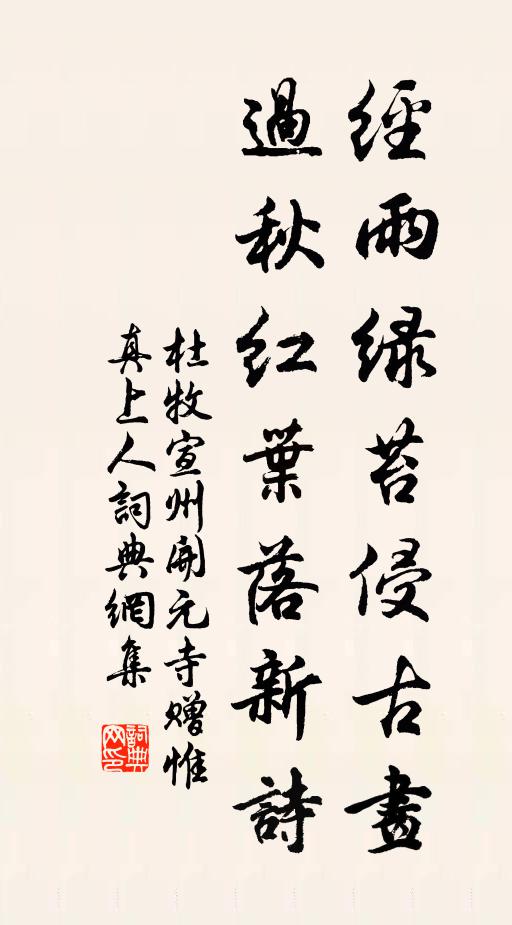 經雨綠苔侵古畫
過秋紅葉落新詩
杜牧宣州開元寺贈惟
真上人詞典網集
詞典
网印